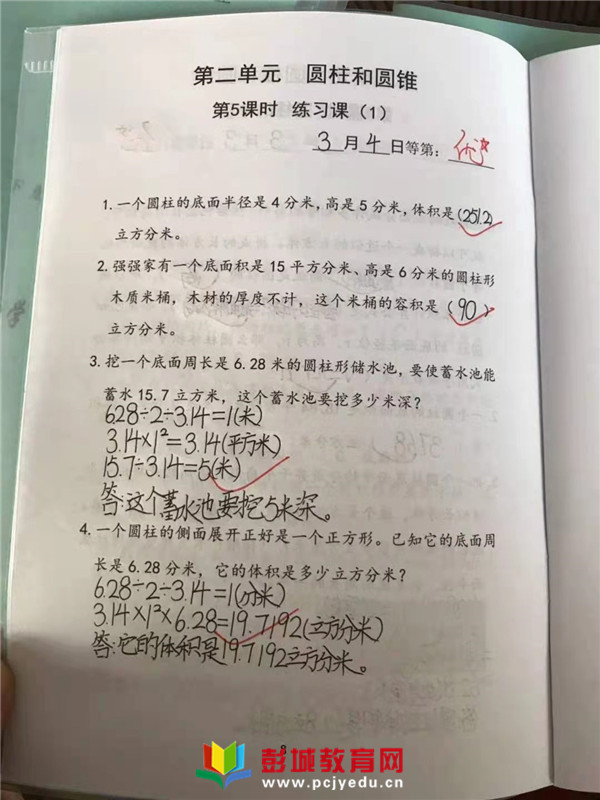 第二单元 圆柱和圆锥
第5课时 练习课(1)
3月4日等第：优
1. 一个圆柱的底面半径是4分米,高是5分米,体积是(251.2)
立方分米。
2. 强强家有一个底面积是15平方分米、高是6分米的圆柱形
木质米桶，木材的厚度不计，这个米桶的容积是(90)
立方分米。
3. 挖一个底面周长是6.28米的圆柱形储水池，要使蓄水池能
蓄水15.7立方米，这个蓄水池要挖多少米深？
6.28÷2÷3.14=1(米)
3.14×1²=3.14(平方米)
15.7÷3.14=5(米)
答:这个蓄水池要挖5米深。
4. 一个圆柱的侧面展开正好是一个正方形。已知它的底面周
长是6.28分米，它的体积是多少立方分米？
6.28÷2÷3.14=1(分米)
3.14×1²×6.28=19.7192(立方分米)
答:它的体积是19.7192立方分米。
彭城教育网
www.pcjyedu.cn